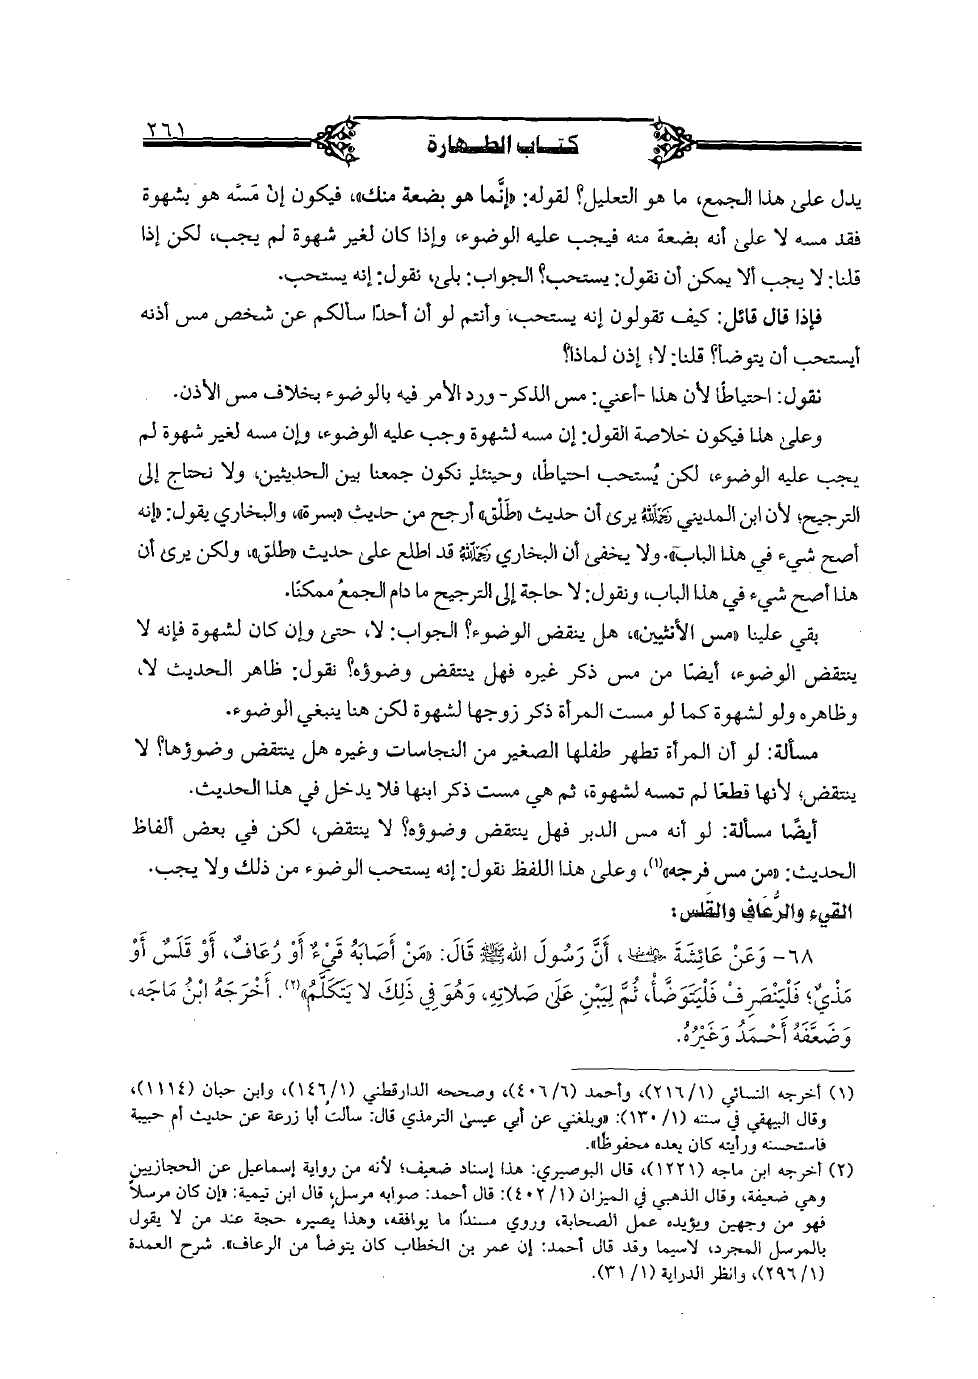 ٢٦١
كتاب الطهارة
يدل على هذا الجمع، ما هو التعليل؟ لقوله: «إنَّما هو بضعة منك»، فيكون إنْ مَسَّه هو بشهوة
فقد مسه لا على أنه بضعة منه فيجب عليه الوضوء، وإذا كان لغير شهوة لم يجب، لكن إذا
قلنا: لا يجب ألا يمكن أن نقول: يستحب؟ الجواب: بلى، نقول: إنه يستحب.
فإذا قال قائل: كيف تقولون إنه يستحب، وأنتم لو أن أحدًا سألكم عن شخص مس أذنه
أيستحب أن يتوضأ؟ قلنا: لا؛ إذن لماذا؟
نقول: احتياطًا لأن هذا -أعني: مس الذكر- ورد الأمر فيه بالوضوء بخلاف مس الأذن.
وعلى هذا فيكون خلاصة القول: إن مسه لشهوة وجب عليه الوضوء، وإن مسه لغير شهوة لم
يجب عليه الوضوء، لكن يُستحب احتياطًا، وحينئذٍ نكون جمعنا بين الحديثين، ولا نحتاج إلى
الترجيح؛ لأن ابن المديني رَحِمَهُ اللهُ يرى أن حديث «طَلْق» أرجح من حديث «بسرة»، والبخاري يقول: «إنه
أصح شيء في هذا الباب». ولا يخفى أن البخاري رَحِمَهُ اللهُ قد اطلع على حديث «طلق»، ولكن يرى أن
هذا أصح شيء في هذا الباب، ونقول: لا حاجة إلى الترجيح ما دام الجمعُ ممكنًا.
بقي علينا «مس الأنثيين»، هل ينقض الوضوء؟ الجواب: لا، حتى وإن كان لشهوة فإنه لا
ينتقض الوضوء، أيضًا من مس ذكر غيره فهل ينتقض وضوؤه؟ نقول: ظاهر الحديث لا،
وظاهره ولو لشهوة كما لو مست المرأة ذكر زوجها لشهوة لكن هنا ينبغي الوضوء.
مسألة: لو أن المرأة تطهر طفلها الصغير من النجاسات وغيره هل ينتقض وضوؤها؟ لا
ينتقض؛ لأنها قطعًا لم تمسه لشهوة، ثم هي مست ذكر ابنها فلا يدخل في هذا الحديث.
أيضًا مسألة: لو أنه مس الدبر فهل ينتقض وضوؤه؟ لا ينتقض، لكن في بعض ألفاظ
الحديث: «من مس فرجه»(١)، وعلى هذا اللفظ نقول: إنه يستحب الوضوء من ذلك ولا يجب.
القيء والرُّعاف والقَلس:
٦٨- وَعَنْ عَائِشَةَ رضي الله عنها، أَنَّ رَسُولَ اللهِ ﷺ قَالَ: «مَنْ أَصَابَهُ قَيْءٌ أَوْ رُعَافٌ، أَوْ قَلَسٌ أَوْ
مَذْيٌ؛ فَلْيَنْصَرِفْ فَلْيَتَوَضَّأْ، ثُمَّ لِيَبْنِ عَلَى صَلَاتِهِ، وَهُوَ فِي ذَلِكَ لَا يَتَكَلَّمُ»(٢). أَخْرَجَهُ ابْنُ مَاجَه،
وَضَعَّفَهُ أَحْمَدُ وَغَيْرُهُ.
(١) أخرجه النسائي (٢١٦/١)، وأحمد (٤٠٦/٦)، وصححه الدارقطني (١٤٦/١)، وابن حبان (١١١٤)،
وقال البيهقي في سننه (١٣٠/١): «وبلغني عن أبي عيسى الترمذي قال: سألت أبا زرعة عن حديث أم حبيبة
فاستحسنه ورأيته كان يعده محفوظًا».
(٢) أخرجه ابن ماجه (١٢٢١)، قال البوصيري: هذا إسناد ضعيف؛ لأنه من رواية إسماعيل عن الحجازيين
وهي ضعيفة، وقال الذهبي في الميزان (٤٠٢/١): قال أحمد: صوابه مرسل، قال ابن تيمية: «إن كان مرسلاً
فهو من وجهين ويؤيده عمل الصحابة، وروي مسندًا ما يوافقه، وهذا يصيره حجة عند من لا يقول
بالمرسل المجرد، لاسيما وقد قال أحمد: إن عمر بن الخطاب كان يتوضأ من الرعاف». شرح العمدة
(٢٩٦/١)، وانظر الدراية (٣١/١).